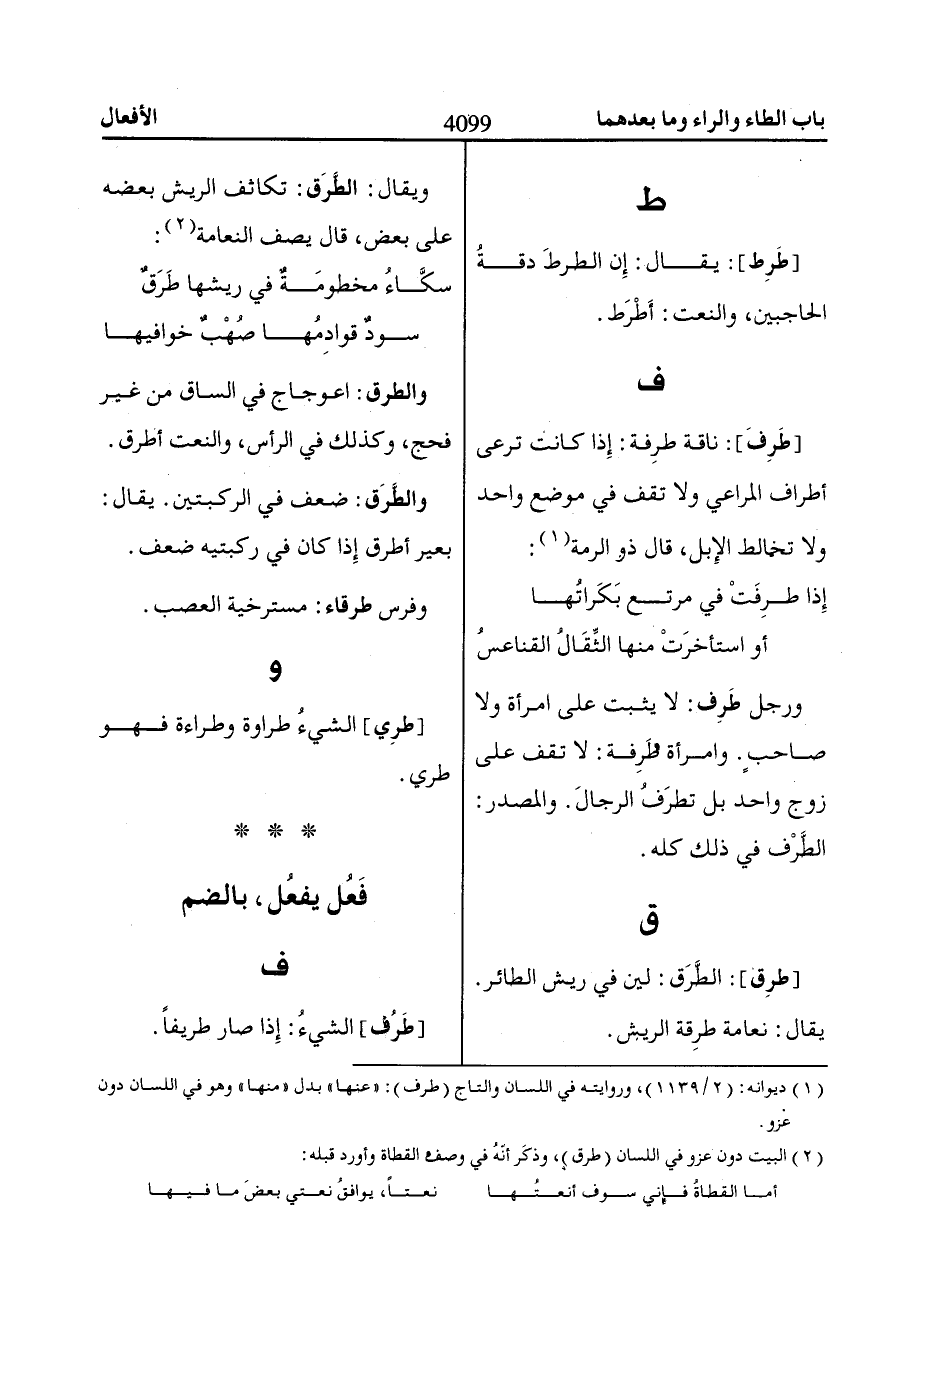 باب الطاء والراء وما بعدهما
4099
الأفعال
ط
[طَرِط]: يقال: إن الطرطَ دقةُ
الحاجبين، والنعت: أَطْرَط.
ف
[طَرِفَ]: ناقة طرِفة: إذا كانت ترعى
أطراف المراعي ولا تقف في موضع واحد
ولا تخالط الإبل، قال ذو الرمة(١):
إذا طرِفَتْ في مرتع بَكَراتُها
أو استأخرَتْ منها الثِّقَالُ القناعسُ
ورجل طَرِف: لا يثبت على امرأة ولا
صاحبٍ. وامرأة طَرِفة: لا تقف على
زوج واحد بل تطرَفُ الرجالَ. والمصدر:
الطَّرْف في ذلك كله.
ق
[طرِق]: الطَّرَق: لين في ريش الطائر.
يقال: نعامة طرِقة الريش.
ويقال: الطَّرَق: تكاثف الريش بعضه
على بعض، قال يصف النعامة(٢):
سكَّاءُ مخطومَةٌ في ريشها طَرَقٌ
سودٌ قوادمُها صُهْبٌ خوافيها
والطرق: اعوجاج في الساق من غير
فحج، وكذلك في الرأس، والنعت أطرق.
والطَّرَق: ضعف في الركبتين. يقال:
بعير أطرق إذا كان في ركبتيه ضعف.
وفرس طرقاء: مسترخية العصب.
و
[طرِي] الشيءُ طراوة وطراءة فهو
طري.
* * *
فَعُل يفعُل، بالضم
ف
[طَرُف] الشيءُ: إذا صار طريفاً.
(١) ديوانه: (٢/١١٣٩)، وروايته في اللسان والتاج (طرف): «عنها» بدل «منها» وهو في اللسان دون
عزو.
(٢) البيت دون عزو في اللسان (طرق)، وذكر أنّهُ في وصف القطاة وأورد قبله:
أما القطاةُ فإني سوف أنعتُها نعتاً، يوافقُ نعتي بعضَ ما فيها